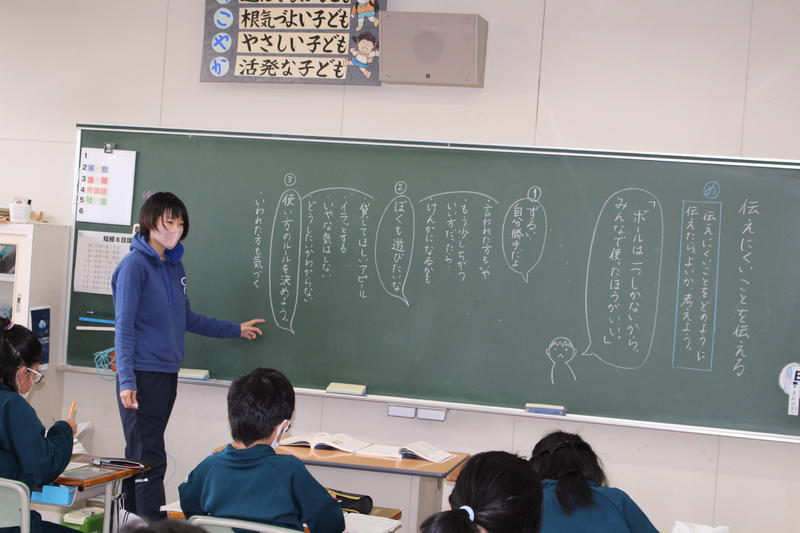 こ 根気づよい子ども
や やさしい子ども
か 活発な子ども
伝えにくいことを伝える
め
伝えにくいことをどのように
伝えたらよいか考えよう。
「ボールは一つしかないから、
みんなで使ったほうがいい。」
①
ずるい、
自分勝手だよ
・言われた方もいや
・もう少しちがう
いい方だったら…
けんかになるかも
②
ぼくも遊びたいな
貸してほしいアピール
・イラッとする
・いやな気はしない
・どうしたいかわからない
③
使い方のルールを決めよう。
・いわれた方も気づく
1
2 算数
3 国語
4 外国語
5 社会
6